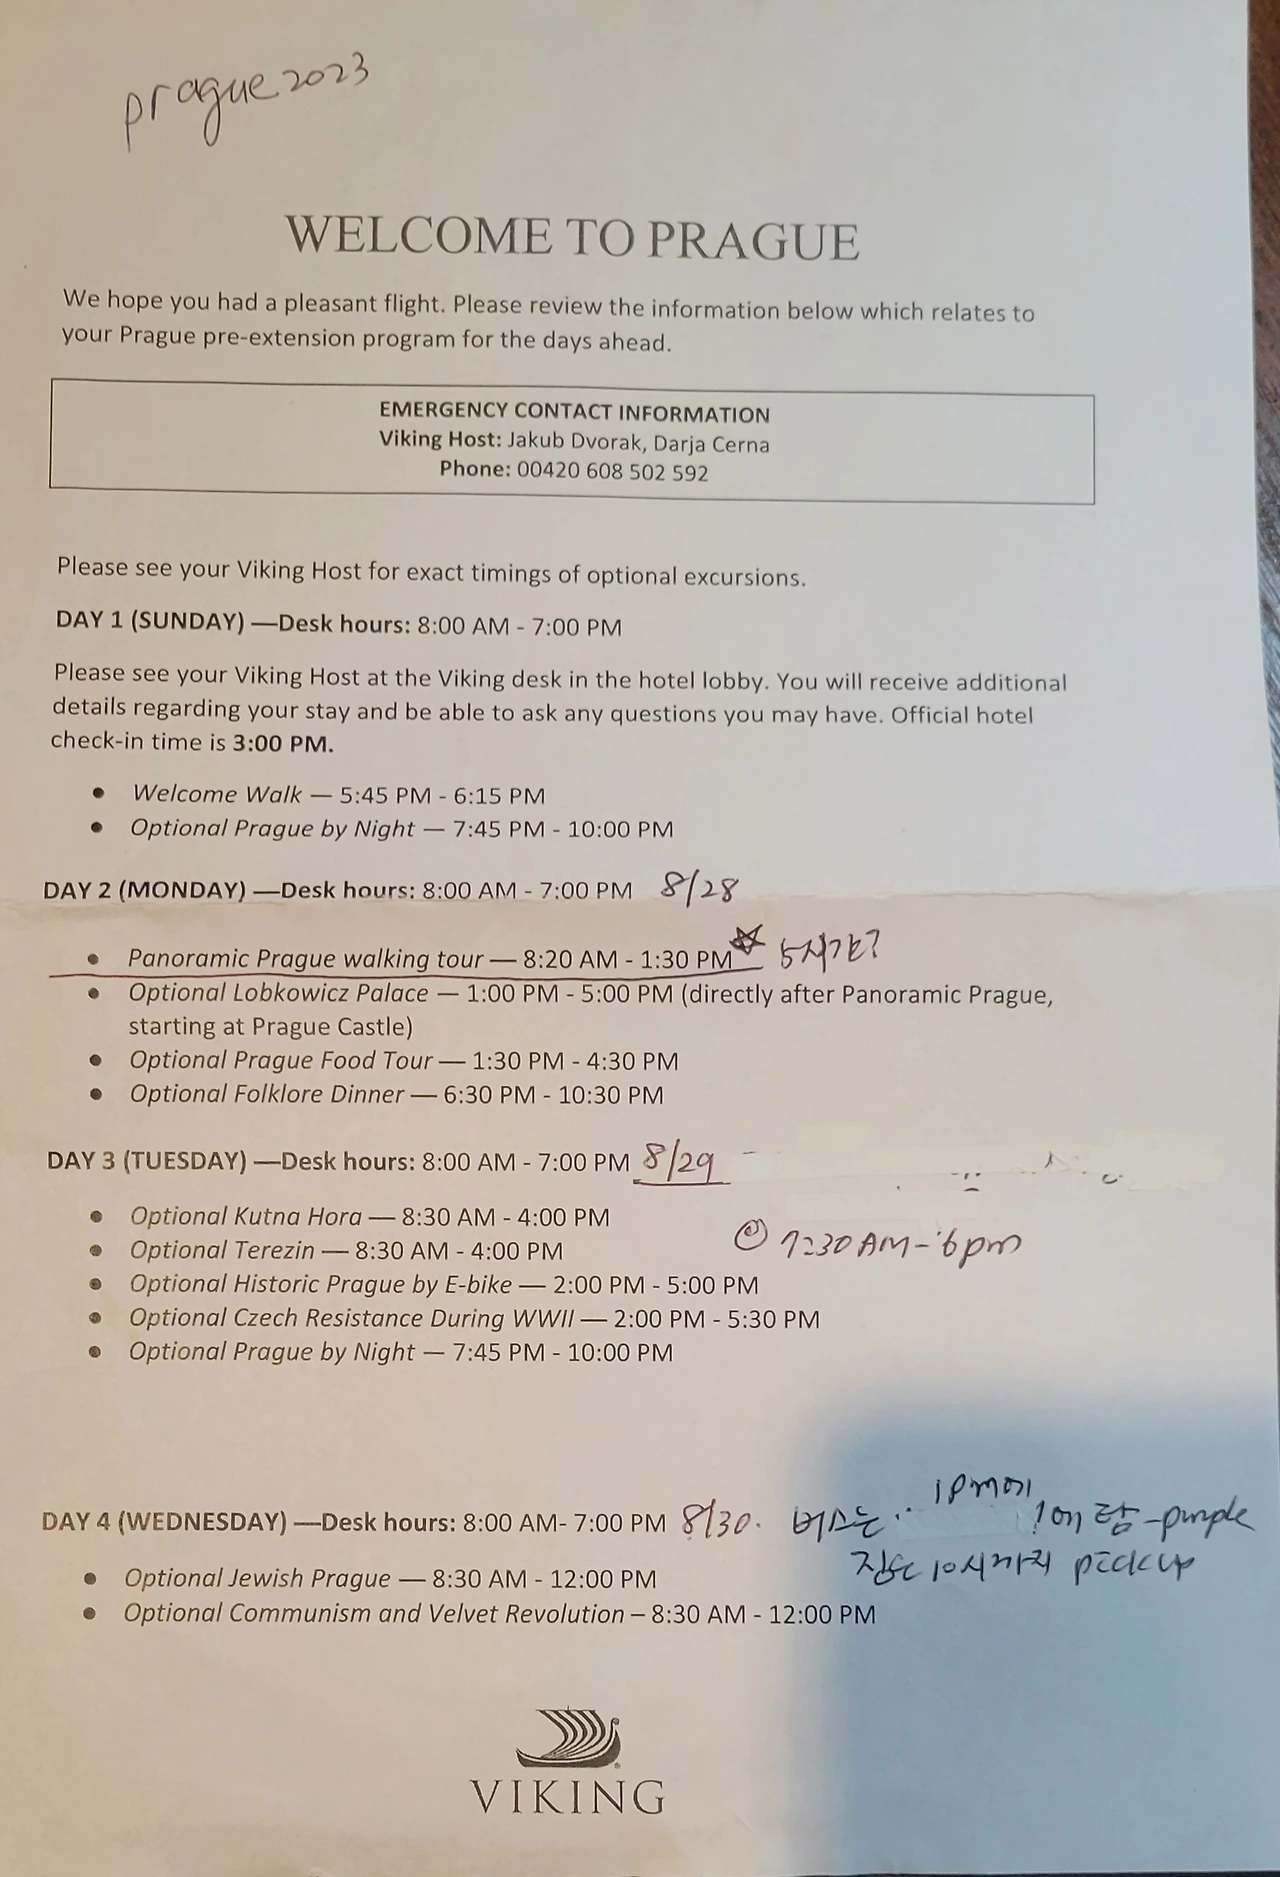 prague 2023
WELCOME TO PRAGUE
We hope you had a pleasant flight. Please review the information below which relates to
your Prague pre-extension program for the days ahead.
EMERGENCY CONTACT INFORMATION
Viking Host: Jakub Dvorak, Darja Cerna
Phone: 00420 608 502 592
Please see your Viking Host for exact timings of optional excursions.
DAY 1 (SUNDAY) —Desk hours: 8:00 AM - 7:00 PM
Please see your Viking Host at the Viking desk in the hotel lobby. You will receive additional
details regarding your stay and be able to ask any questions you may have. Official hotel
check-in time is 3:00 PM.
• Welcome Walk — 5:45 PM - 6:15 PM
• Optional Prague by Night — 7:45 PM - 10:00 PM
DAY 2 (MONDAY) —Desk hours: 8:00 AM - 7:00 PM 8/28
• Panoramic Prague walking tour — 8:20 AM - 1:30 PM 5시간?
• Optional Lobkowicz Palace — 1:00 PM - 5:00 PM (directly after Panoramic Prague,
starting at Prague Castle)
• Optional Prague Food Tour — 1:30 PM - 4:30 PM
• Optional Folklore Dinner — 6:30 PM - 10:30 PM
DAY 3 (TUESDAY) —Desk hours: 8:00 AM - 7:00 PM 8/29
• Optional Kutna Hora — 8:30 AM - 4:00 PM
• Optional Terezin — 8:30 AM - 4:00 PM 7:30 AM - 6pm
• Optional Historic Prague by E-bike — 2:00 PM - 5:00 PM
• Optional Czech Resistance During WWII — 2:00 PM - 5:30 PM
• Optional Prague by Night — 7:45 PM - 10:00 PM
1PM에
DAY 4 (WEDNESDAY) —Desk hours: 8:00 AM- 7:00 PM 8/30. 버스는.. purple
짐은 10시까지 pick up
• Optional Jewish Prague — 8:30 AM - 12:00 PM
• Optional Communism and Velvet Revolution – 8:30 AM - 12:00 PM
VIKING